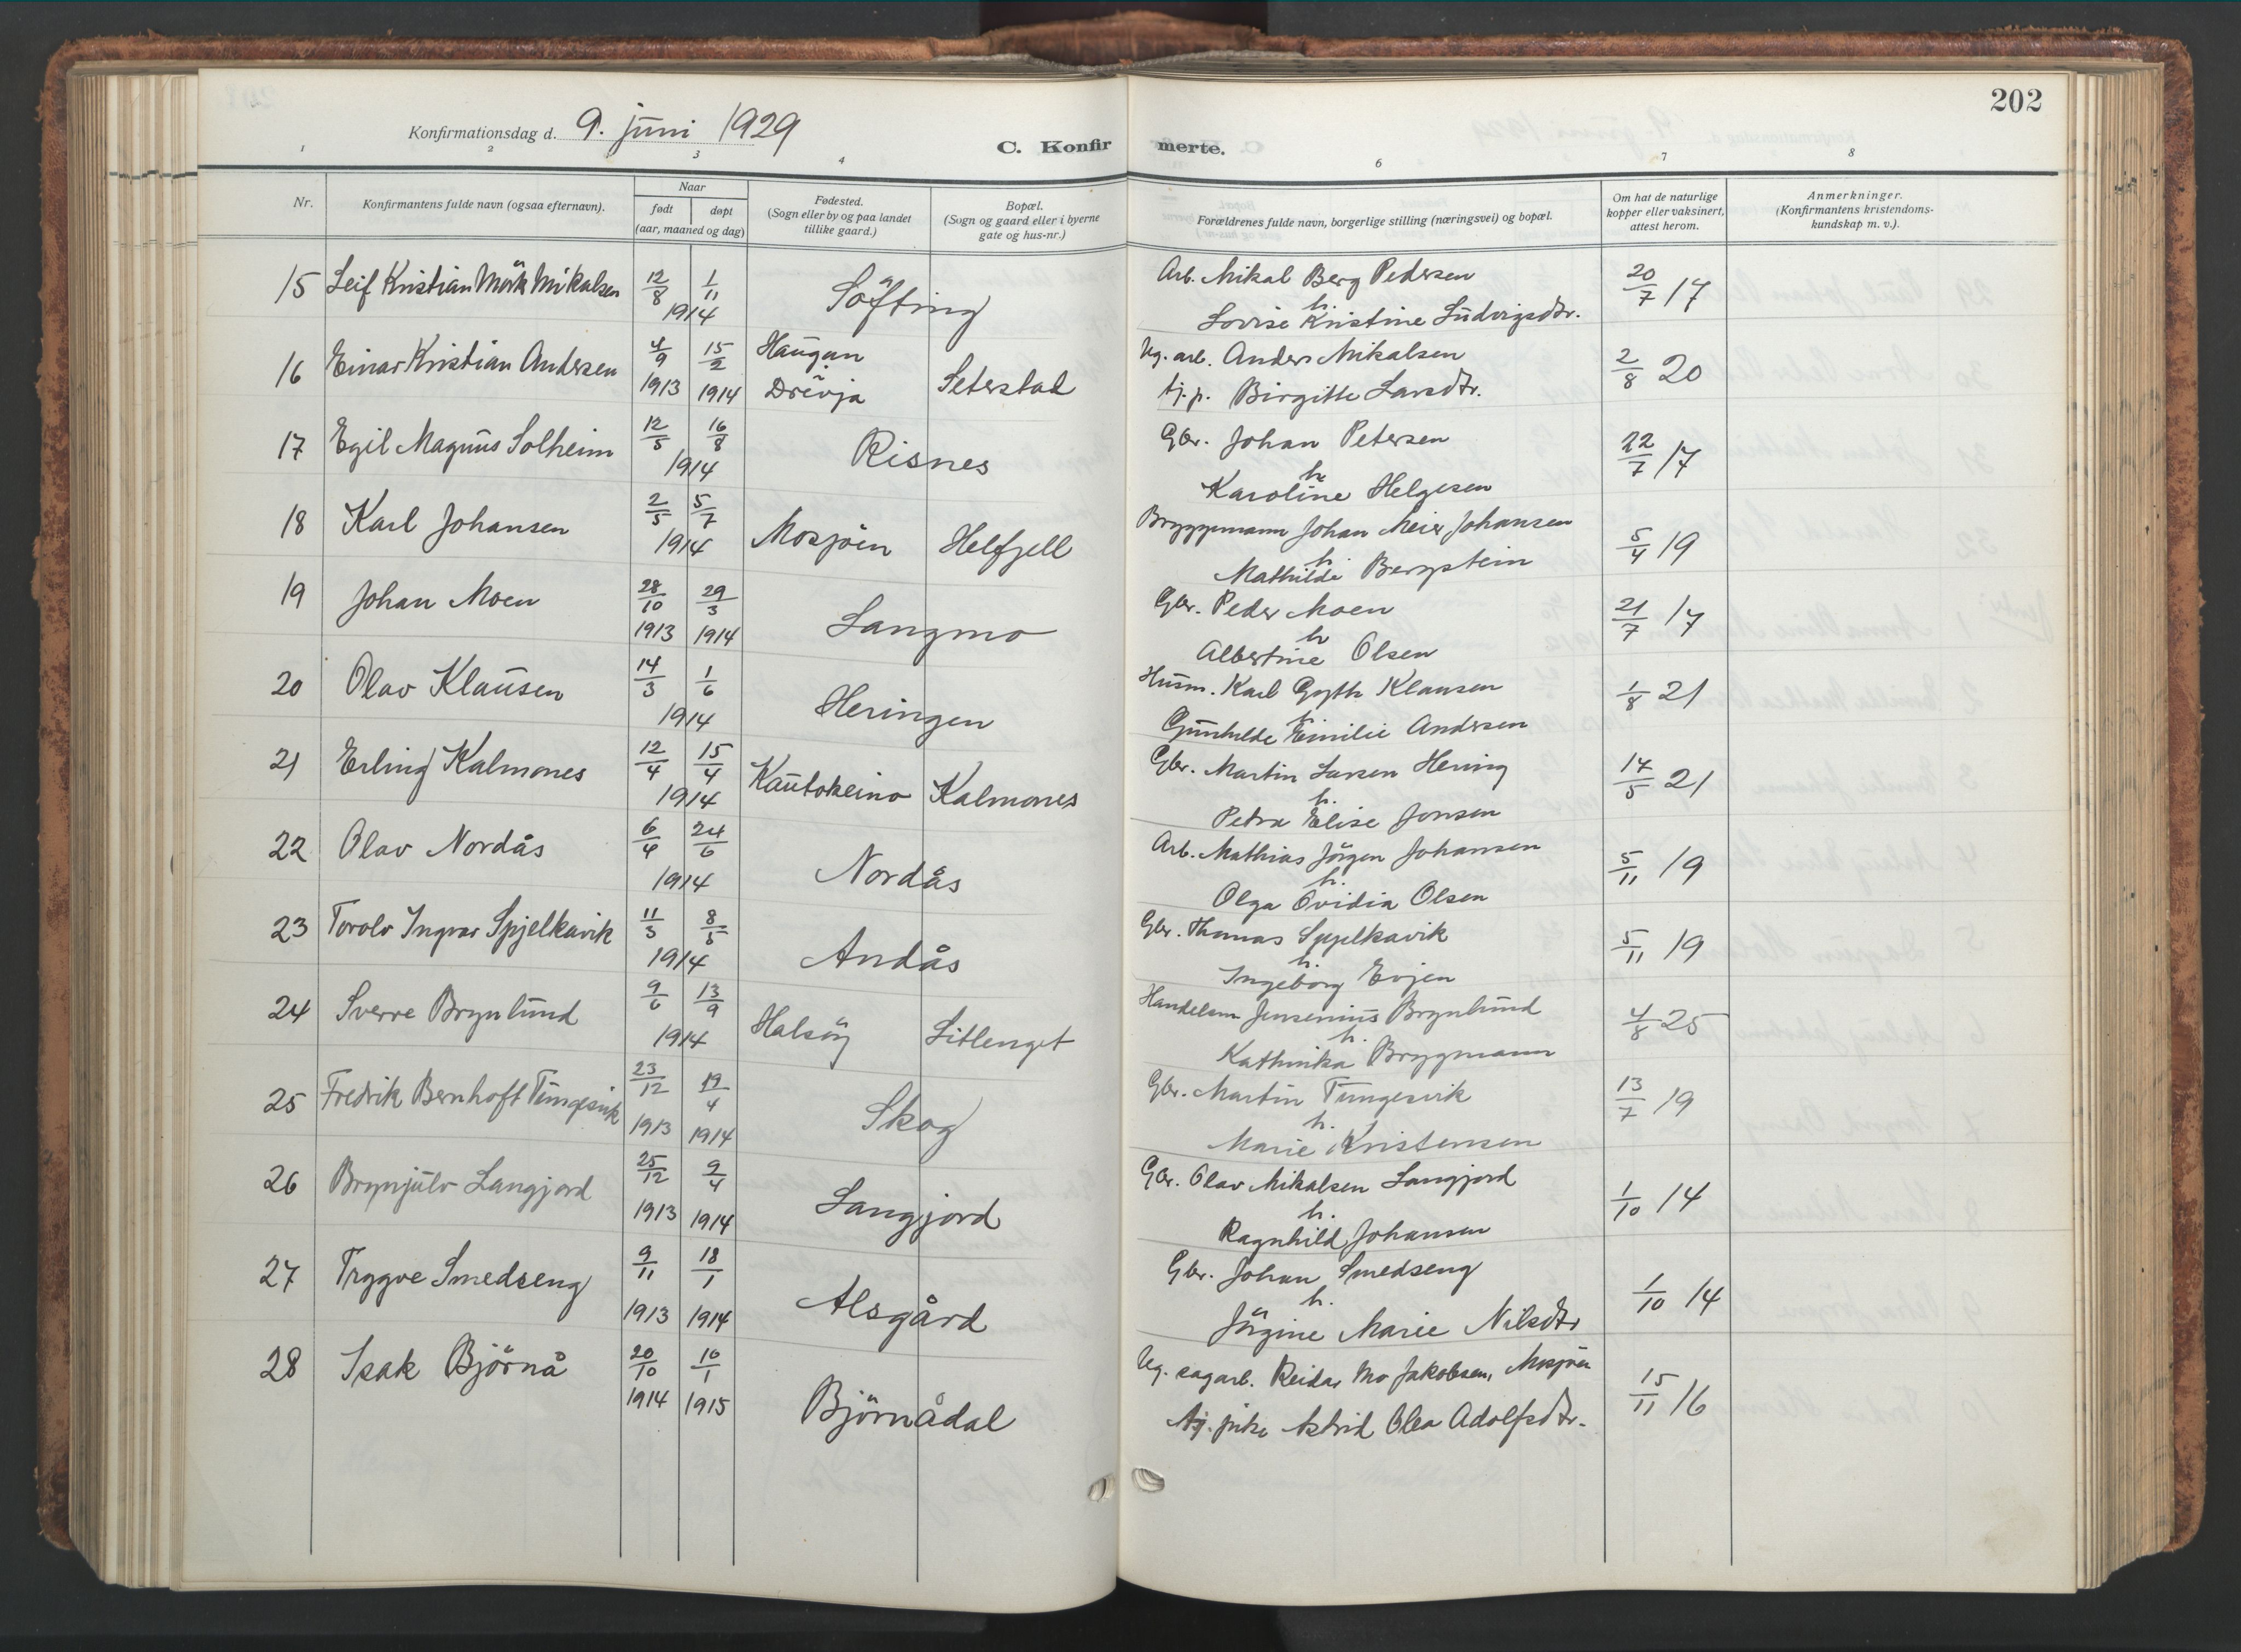 202
Konfirmationsdag d. 9. juni 1929
C. Konfirmerte.
1 2 3 4 6 7 8
Nr.
Konfirmantens fulde navn (ogsaa efternavn).
Naar
født døpt
(aar, maaned og dag)
Fødested.
(Sogn eller by og paa landet
tillike gaard.)
Bopæl.
(Sogn og gaard eller i byerne
gate og hus-nr.)
Forældrenes fulde navn, borgerlige stilling (næringsvei) og bopæl.
Om hat de naturlige
kopper eller vaksinert,
attest herom.
Anmerkninger.
(Konfirmantens kristendoms-
kundskap m. v.).
15 Leif Kristian Mörk Mikalsen 12/8 1/11 1914 Söfting Arb. Mikal Berg Pedersen 20/7 17
h.
Lovise Kristine Ludvigsdtr.
16 Einar Kristian Andersen 4/9 1913 15/2 1914 Haugan Drevja Seterstad Ug. arb. Anders Mikalsen 2/8 20
tj. p. Birgitte Larsdtr.
17 Egil Magnus Solheim 12/5 16/8 1914 Risnes Gbr. Johan Petersen 22/7 17
h.
Karoline Helgesen
18 Karl Johansen 2/5 5/7 1914 Mosjöen Helfjell Bryggemann Johan Meier Johansen 5/4 19
h.
Mathilde Bergstein
19 Johan Moen 28/10 1913 29/3 1914 Langmo Gbr. Peder Moen 21/7 17
h
Albertine Olsen
20 Olav Klausen 14/3 1/6 1914 Heringen Husm. Karl Gyth Klausen 1/8 21
h.
Gunhilde Emilie Andersen
21 Erling Kalmones 12/4 15/4 1914 Kautokeino Kalmones Gbr. Martin Larsen Hering 14/5 21
h.
Petra Elise Jonsen
22 Olav Nordås 6/4 24/6 1914 Nordås Arb. Mathias Jörgen Johansen 5/11 19
h.
Olga Ovidia Olsen
23 Torolv Ingvar Spjelkavik 11/3 8/5 1914 Andås Gbr. Thomas Spjelkavik 5/11 19
h.
Ingeborg Evjen
24 Sverre Brynlund 9/6 13/9 1914 Halsöy Sitlenget Handelsm Jensenius Brynlund 4/8 25
h.
Kathinka Brygmann
25 Fredrik Bernhoft Tungesvik 23/12 1913 19/4 1914 Skog Gbr. Martin Tungesvik 13/7 19
h.
Marie Kristensen
26 Brynjulv Langjord 25/12 1913 9/4 1914 Langjord Gbr. Olav Mikalsen Langjord 1/10 14
h.
Ragnhild Johansen
27 Tryggve Smedseng 9/11 1913 18/1 1914 Alsgård Gbr. Johan Smedseng 1/10 14
h.
Jörgine Marie Nilsdtr
28 Isak Björnå 20/10 1914 10/1 1915 Björnådal Ug. sagarb. Reidar Mo Jakobsen, Mosjöen 15/11 16
tj. pike Astrid Olea Adolfsdtr.